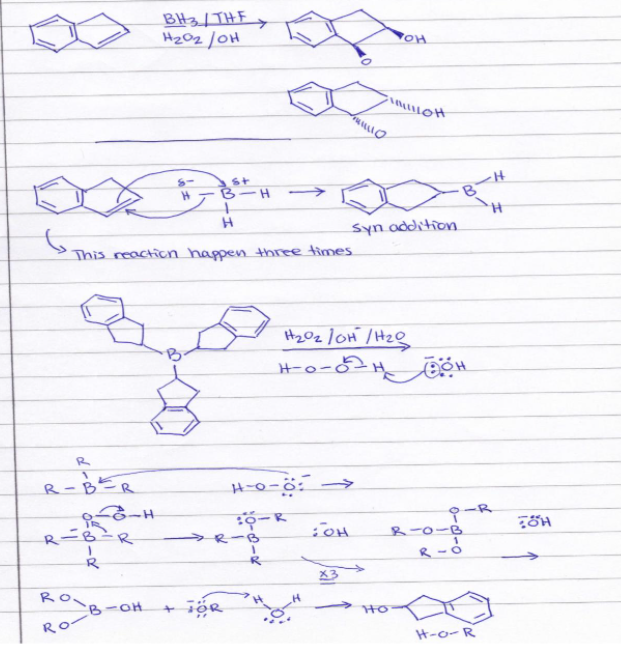 BH3/THF
H2O2/OH
OH
O
OH
O
δ- δ+
H – B – H
H
H
B
H
syn addition
This reaction happen three times
B
H2O2/OH⁻/H2O
H-O-O-H :ÖH
R
R – B – R H-O-Ö:⁻
O-O-H :Ö-R O-R
R – B – R R – B :ÖH R-O-B :ÖH
R R R-O
x3
RO
B-OH + :ÖR H O H HO
RO
H-O-R